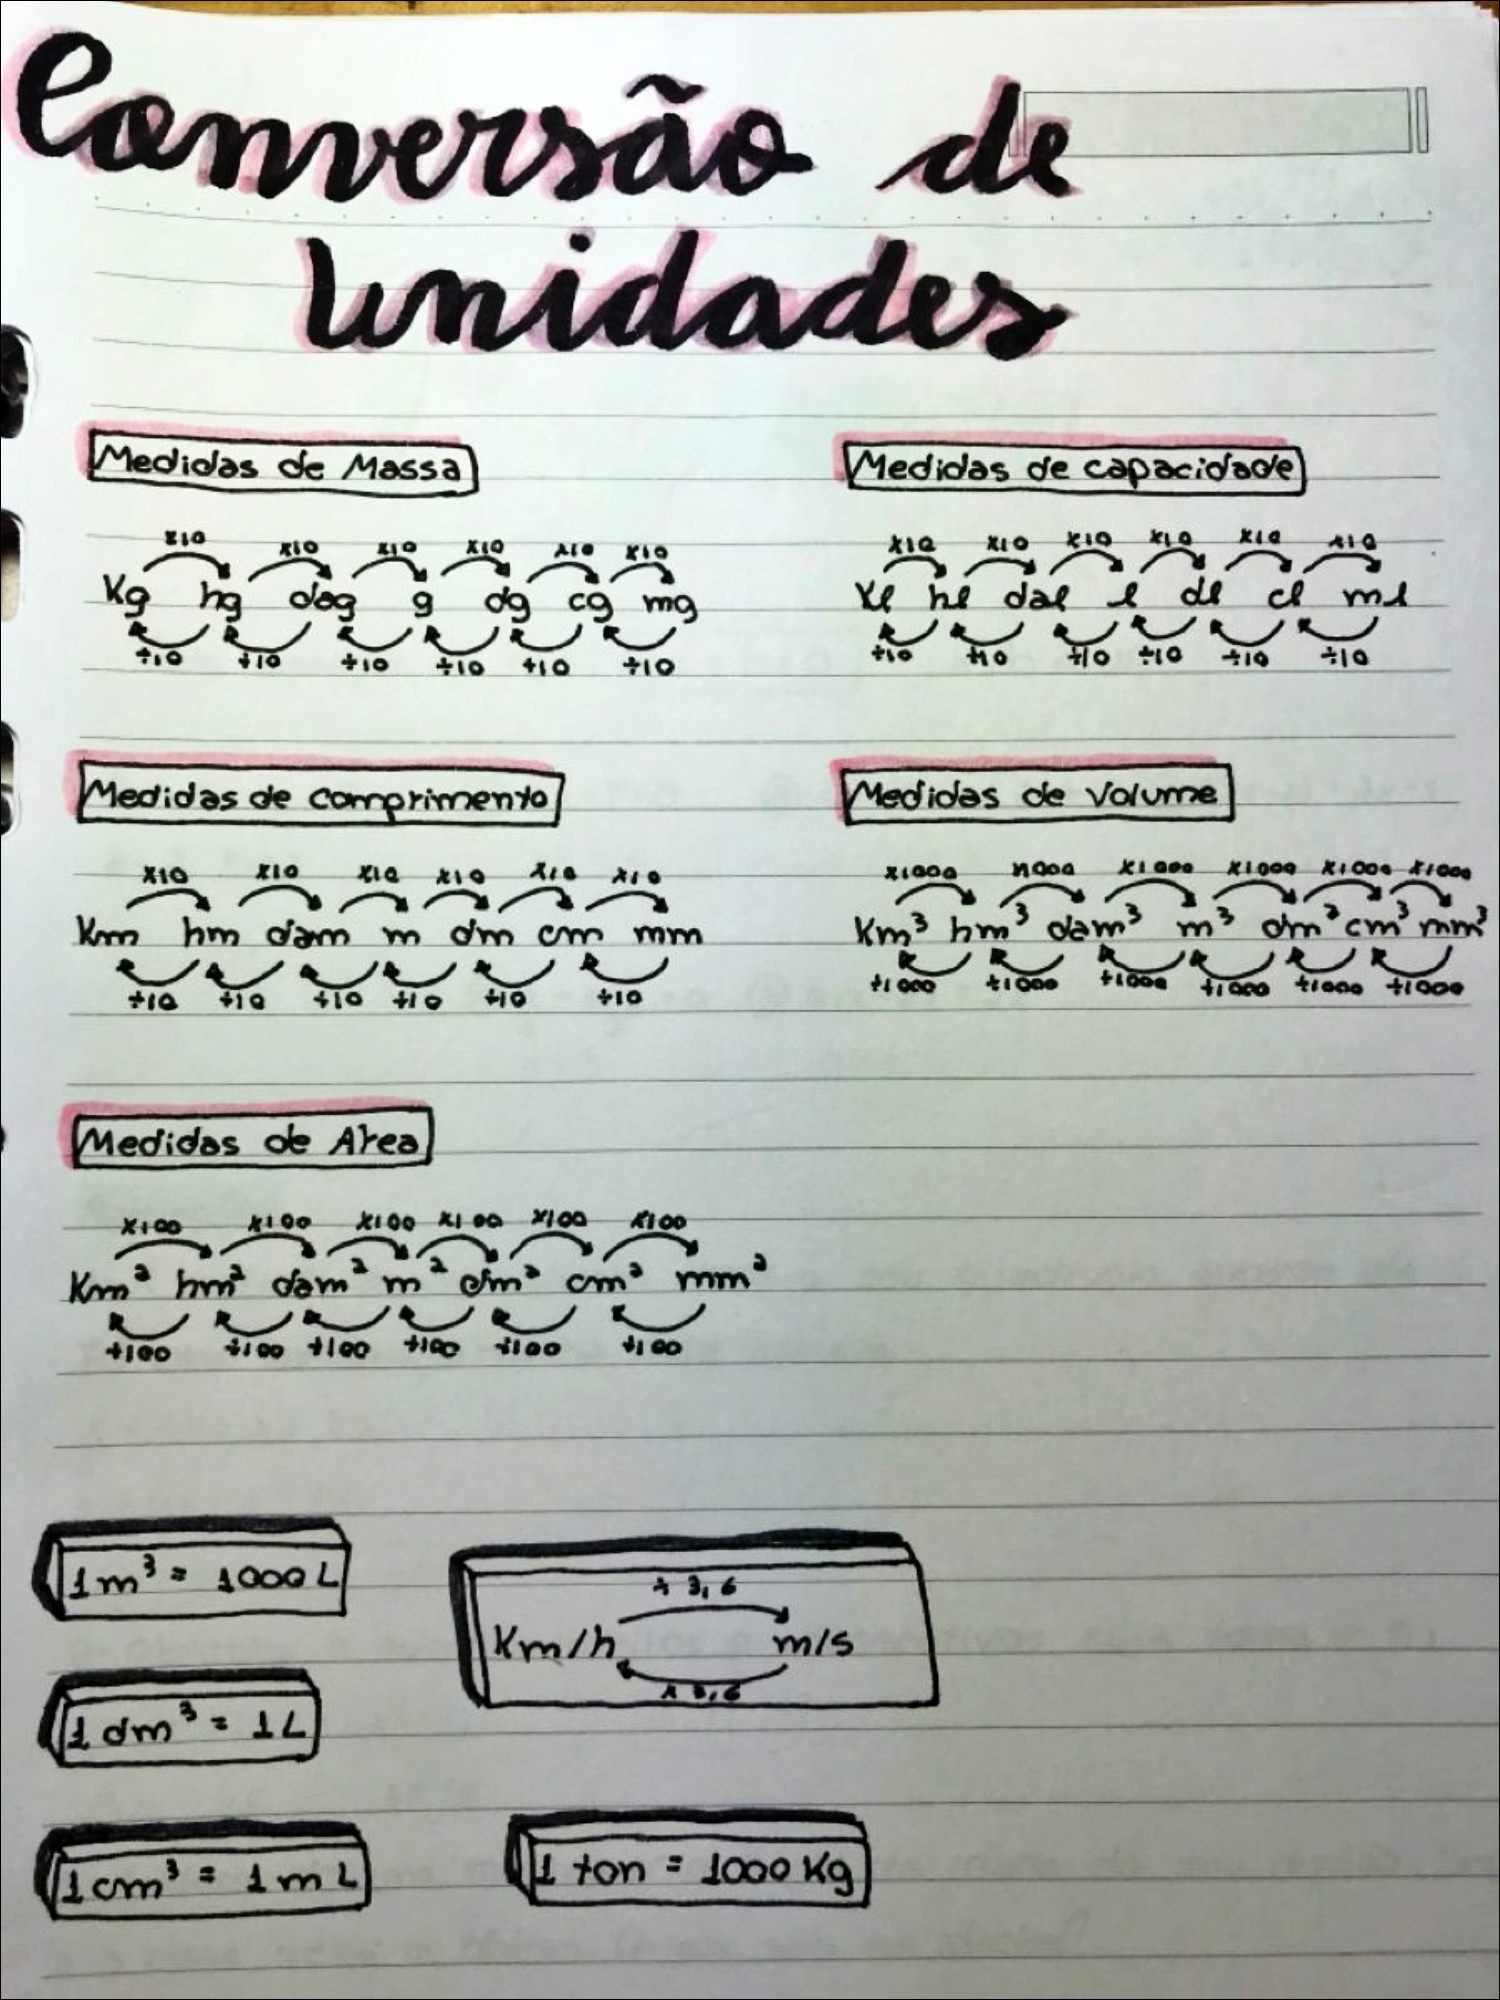 Conversão de
Unidades
Medidas de Massa
x10 x10 x10 x10 x10 x10
Kg hg dag g dg cg mg
÷10 ÷10 ÷10 ÷10 ÷10 ÷10
Medidas de capacidade
x10 x10 x10 x10 x10 x10
Kl hl dal l dl cl ml
÷10 ÷10 ÷10 ÷10 ÷10 ÷10
Medidas de comprimento
x10 x10 x10 x10 x10 x10
Km hm dam m dm cm mm
÷10 ÷10 ÷10 ÷10 ÷10 ÷10
Medidas de Volume
x1000 x1000 x1000 x1000 x1000 x1000
Km³ hm³ dam³ m³ dm³ cm³ mm³
÷1000 ÷1000 ÷1000 ÷1000 ÷1000 ÷1000
Medidas de Area
x100 x100 x100 x100 x100 x100
Km² hm² dam² m² dm² cm² mm²
÷100 ÷100 ÷100 ÷100 ÷100 ÷100
1m³ = 1000L
÷ 3,6
Km/h m/s
x 3,6
1 dm³ = 1L
1cm³ = 1mL
1 ton = 1000Kg